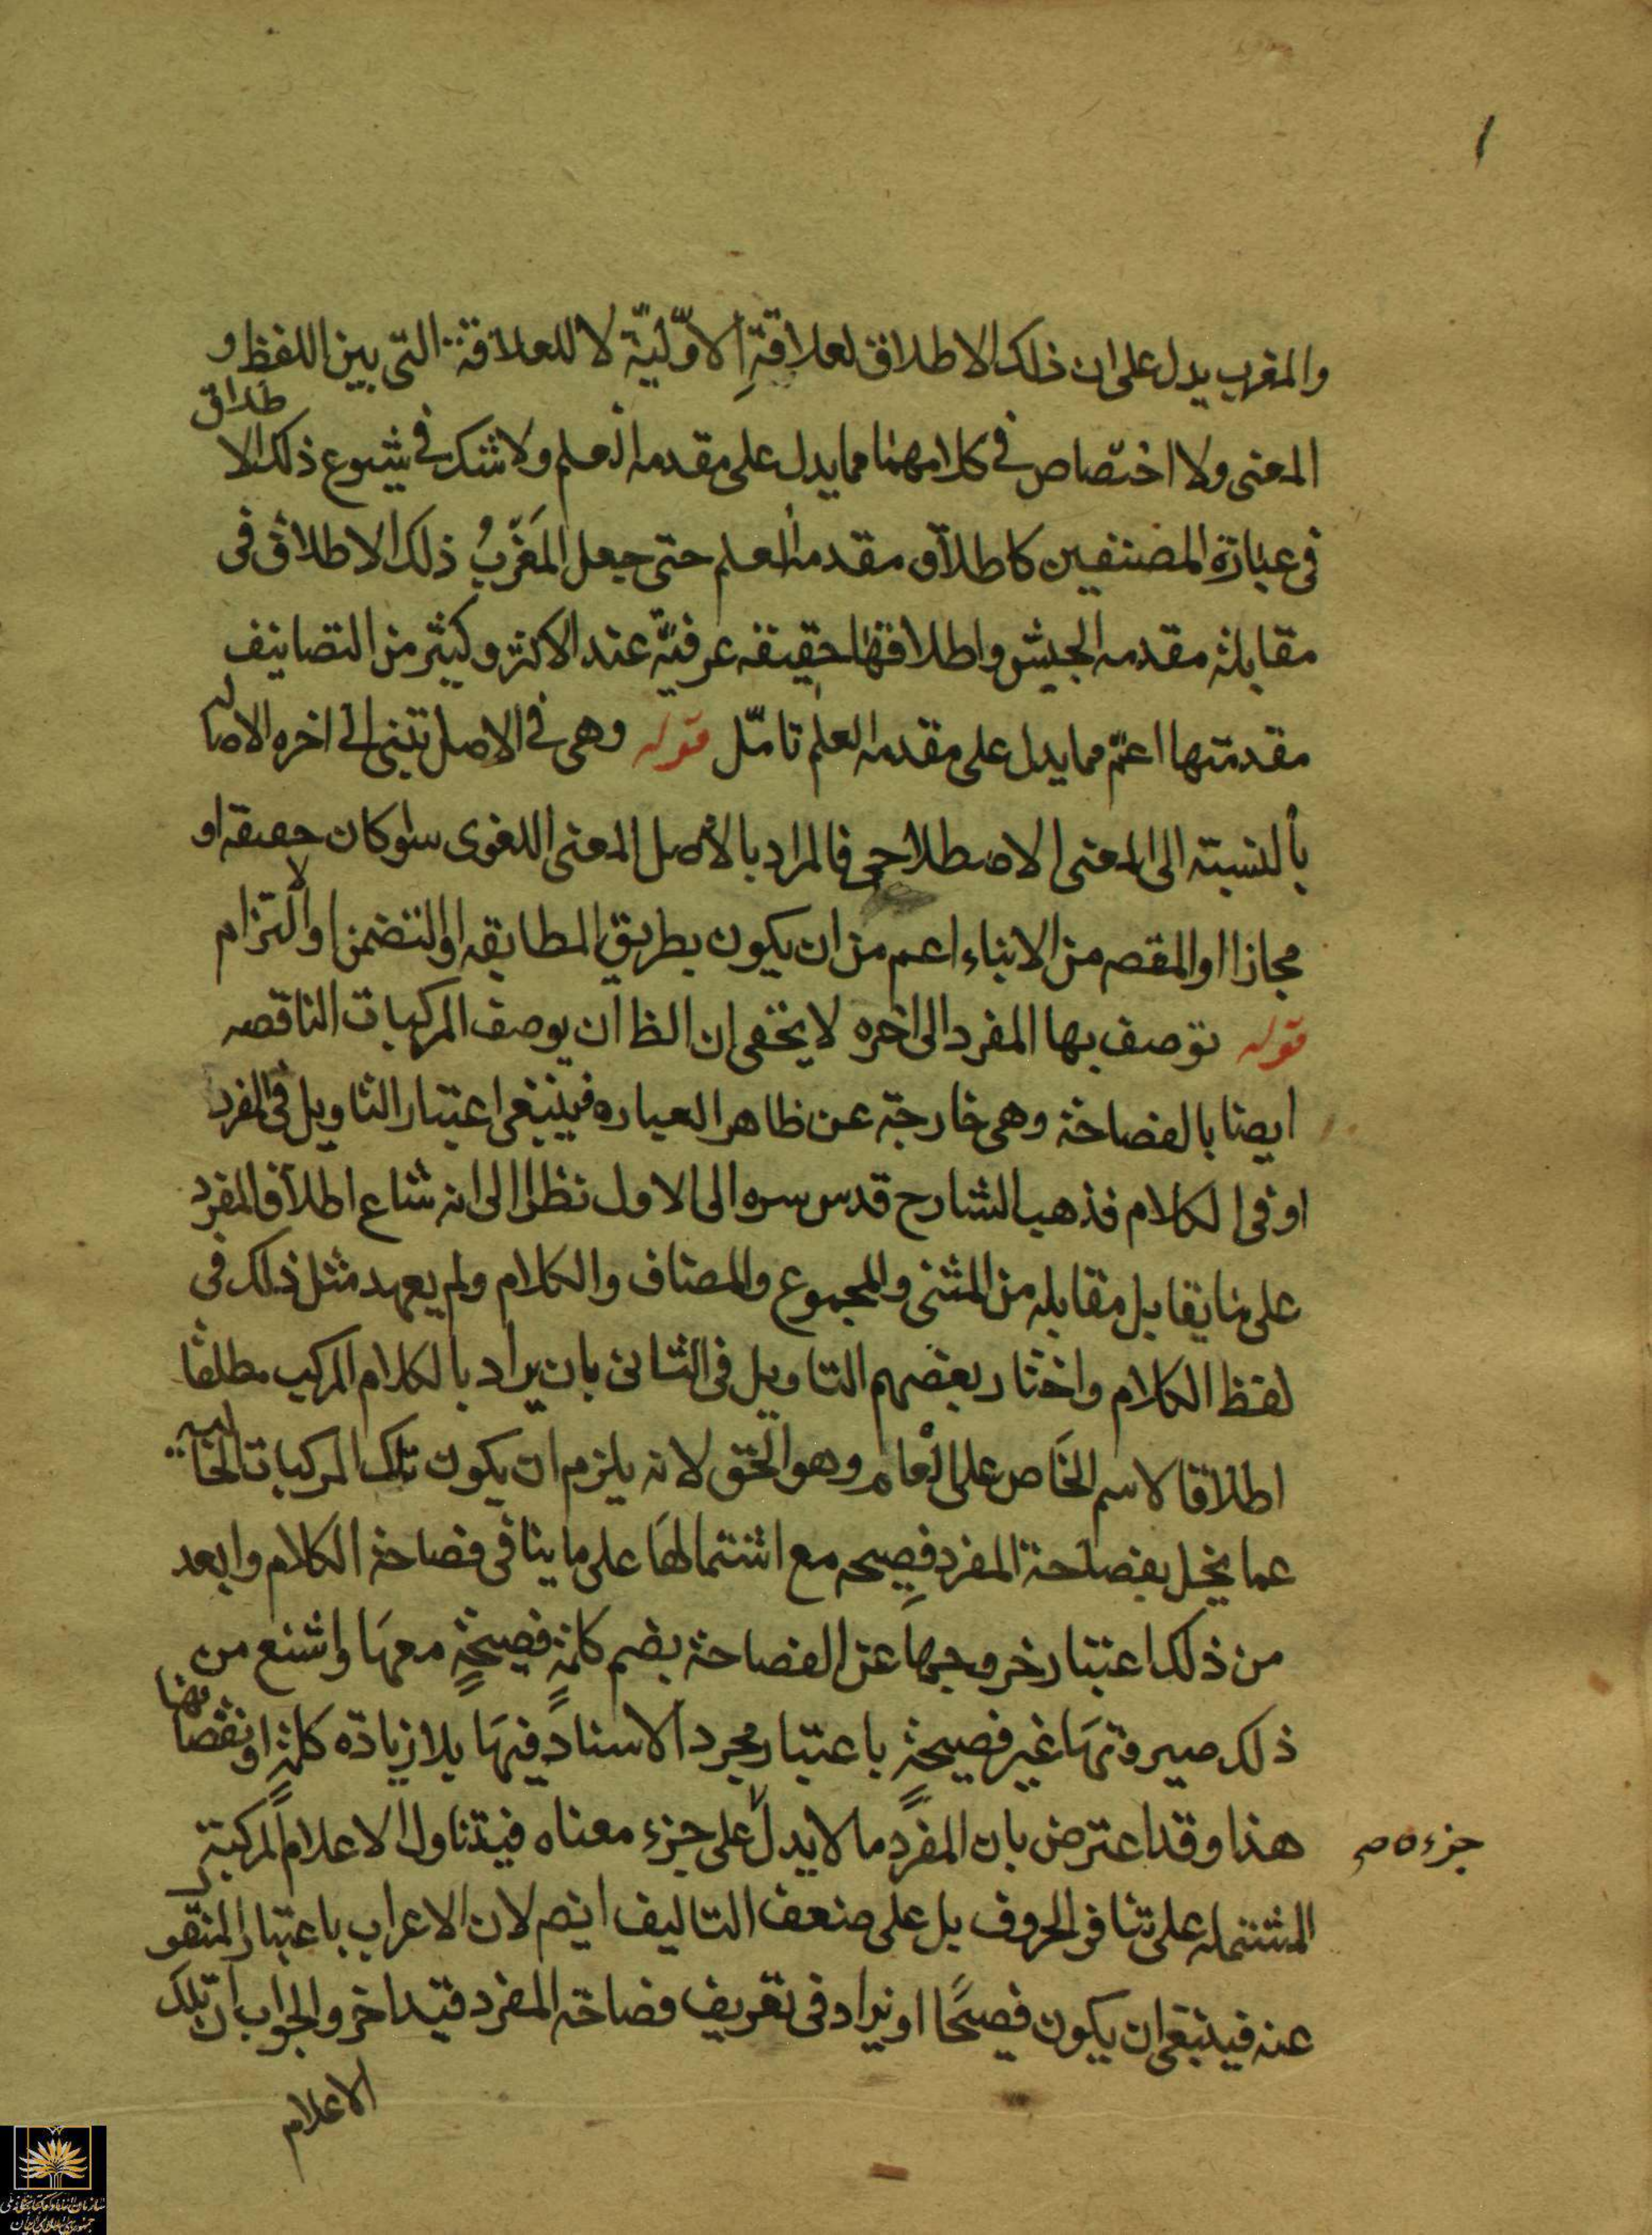 ١
والمغرب يدل على ان ذلك الاطلاق لعلاقةِ الاوّليّة لا للعلاقة التى بين اللفظ و
المعنى ولا اختصاص فى كلامهما مما يدل على مقدمه العلم ولا شك فى شيوع ذلك الاطلاق
فى عبارة المصنفين كاطلاق مقدمه العلم حتى جعل المَغرّبُ ذلك الاطلاق فى
مقابلة مقدمه الجيش واطلاقها حقيقه عرفيّة عند الاكثر وكثير من التصانيف
مقدمتها اعمّ مما يدل على مقدمه العلم تامّل قوله وهى فى الاصل تنبى الى اخره الاصاله
بالنسبته الى المعنى الاصطلاحى فالمراد بالأصل المعنى اللغوى سواء كان حقيقه او
مجازا او المقصه من الانباء اعم من ان يكون بطريق المطابقه او التضمن او الالتزام
قوله توصف بها المفرد الى اخره لا يخفى ان الظا ان يوصف المركبات الناقصه
ايضا بالفصاحة وهى خارجة عن ظاهر العباره فينبغى اعتبار التاويل فى المفرد
او فى الكلام فذهب الشارح قدس سره الى الاول نظرا الى انه شاع اطلاق المفرد
على ما يقابل مقابله من المثنى والمجموع والمضاف والكلام ولم يعهد مثل ذلك فى
لفظ الكلام واختار بعضهم التاويل فى الثانى بان يراد بالكلام المركب مطلقا
اطلاقا لاسم الخاص على العام وهو الحق لانه يلزم ان يكون تلك المركبات الخاليه
عما يخل بفصاحة المفرد فصِيحه مع اشتمالها على ما ينافى فصاحة الكلام وابعد
من ذلك اعتبار خروجها عن الفصاحة بضم كلمةٍ فصيحةٍ معها واشنع من
ذلك صيروتها غير فصيحةٍ باعتبار مجرد الاسناد فيها بلا زيادة كلمةٍ او نقصانها
هذا وقد اعترض بان المفرد ما لا يدل على جزء معناه فيتناول الاعلام المركبة
جزءه صح
المشتمله على تنافر الحروف بل على ضعف التاليف ايضه لان الاعراب باعتبار المنقو
عنه فينبغى ان يكون فصيحًا او يراد فى تعريف فصاحه المفرد قيد اخر والجواب ان تلك
الاعلام